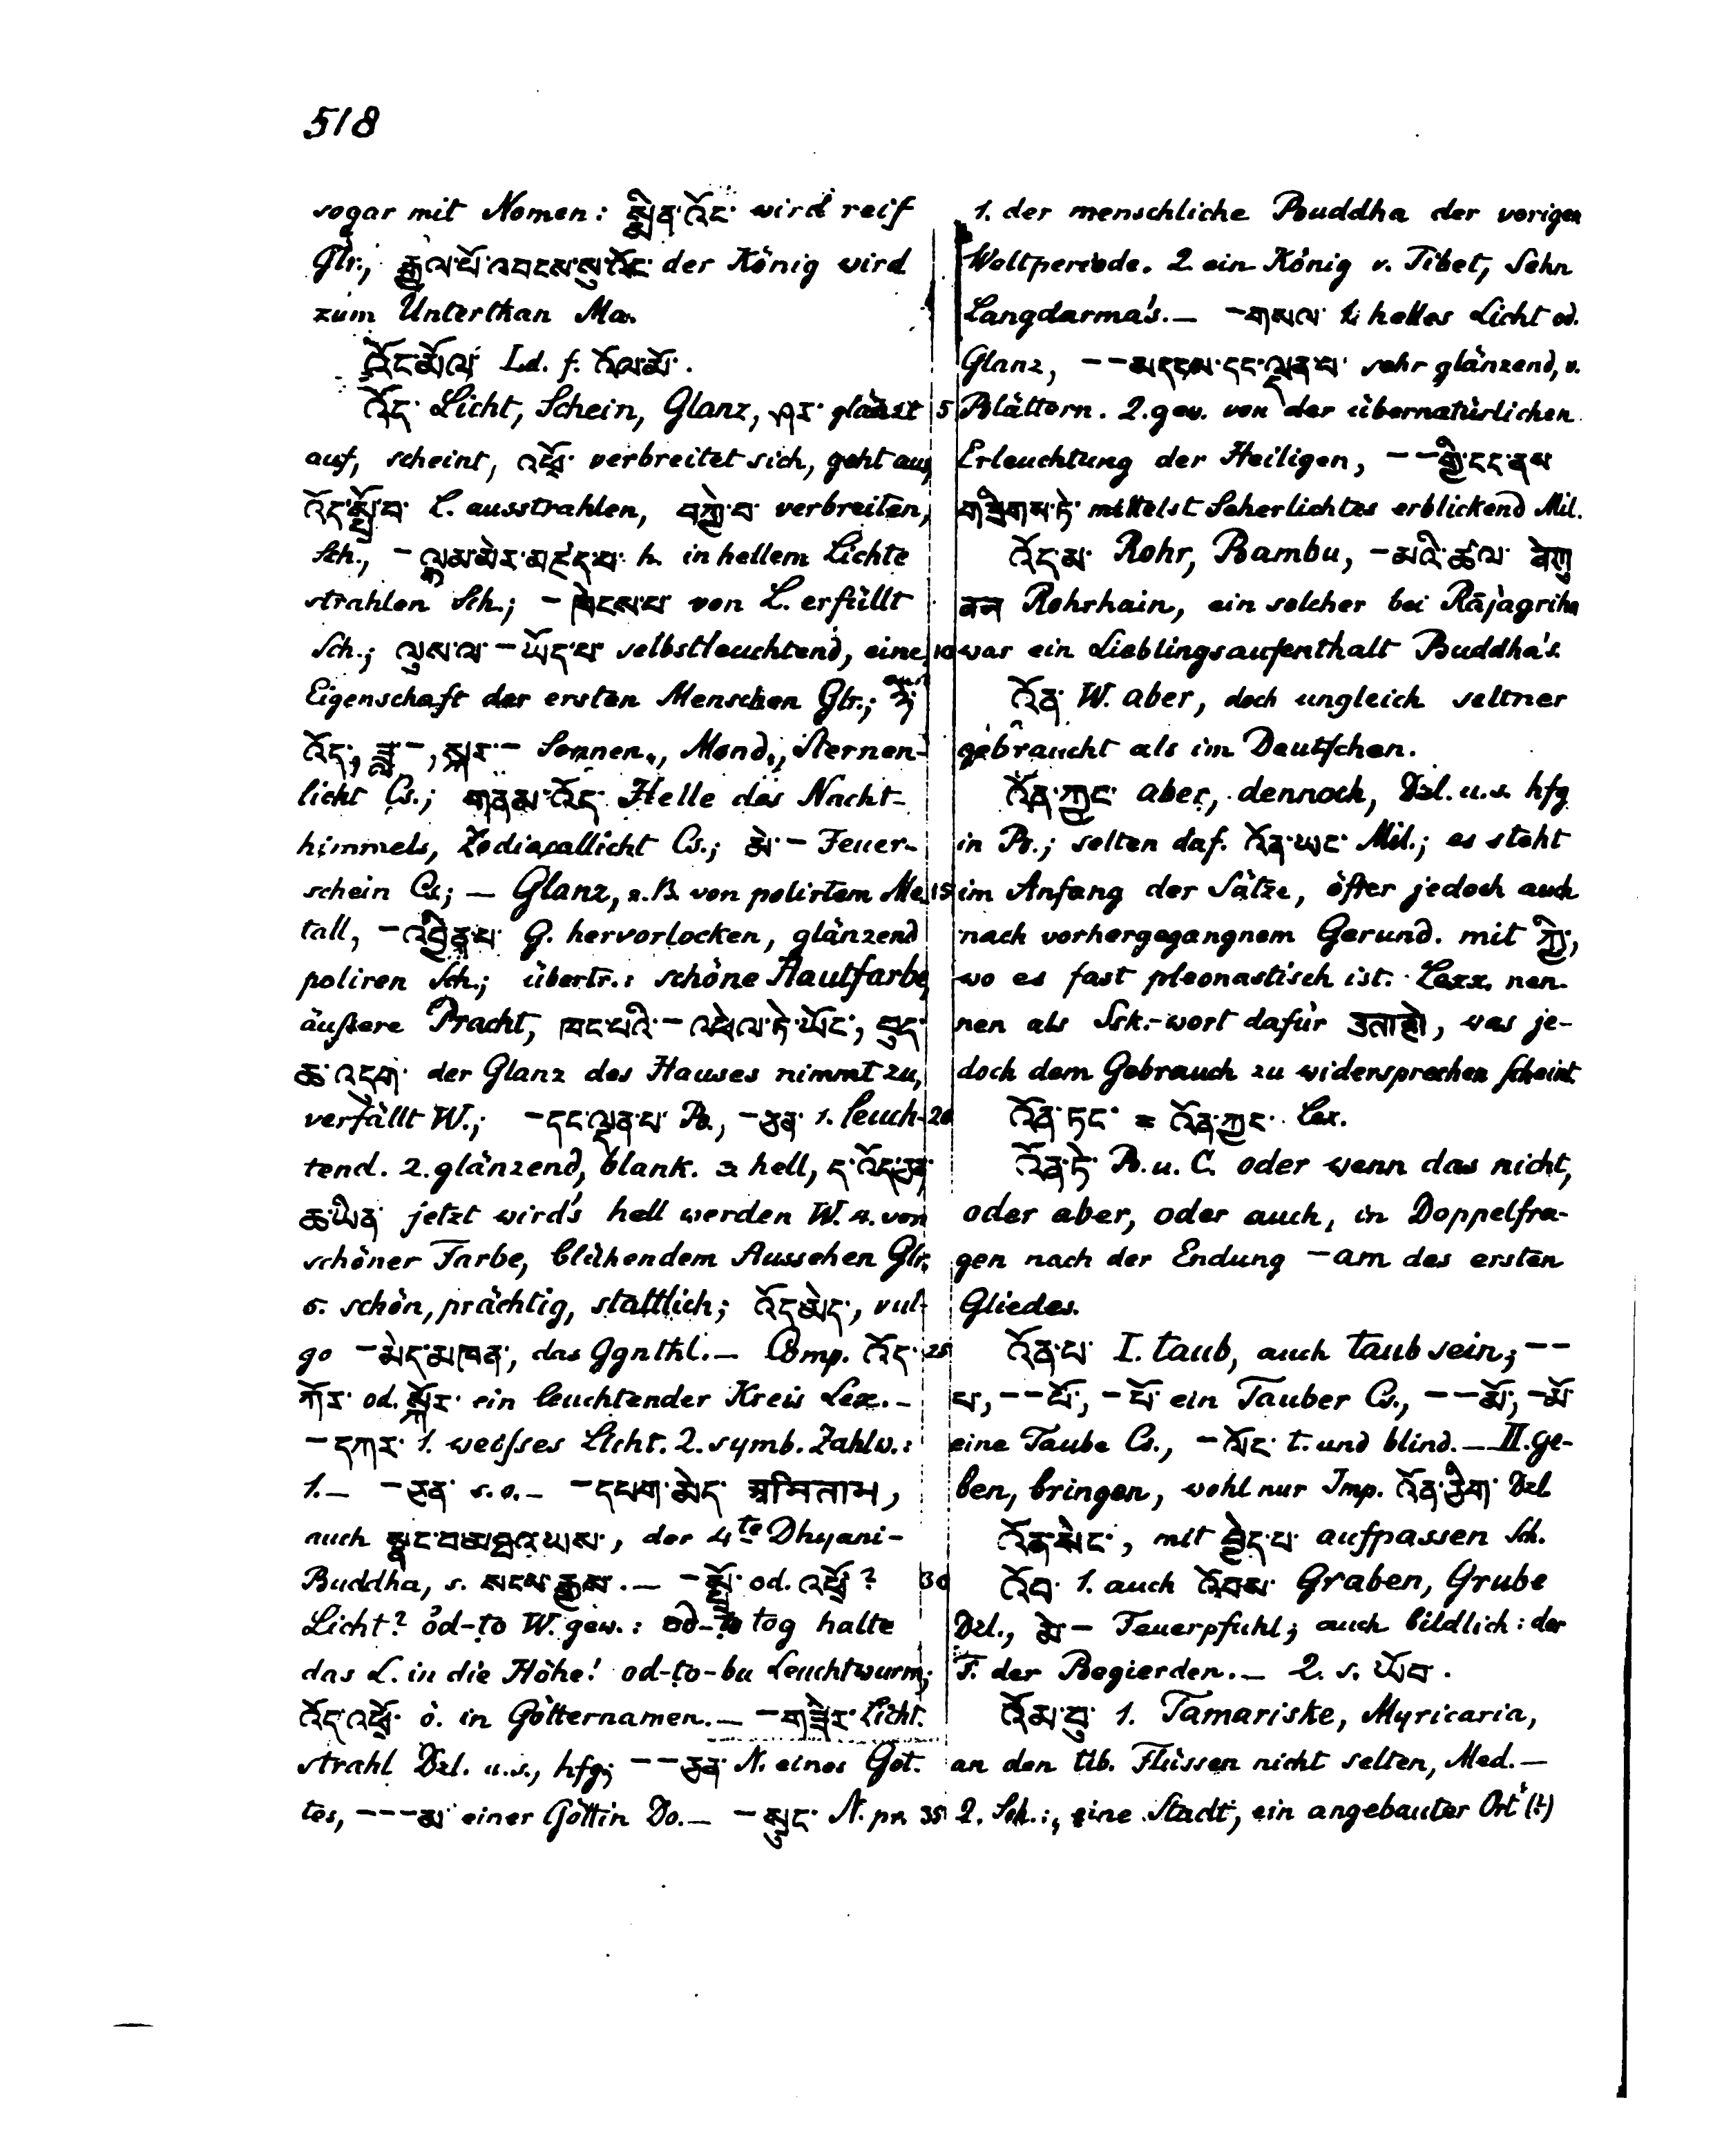 518
sogar mit Nomen: སྨིན་འོང་ wird reif
Glr., རྒྱལ་པོ་འབངས་སུ་འོང་ der König wird
zum Unterthan Ma.
འོང་མོལ་ Ld. f. འོལ་མོ་.
འོད་ Licht, Schein, Glanz, ཤར་ glänzt
auf, scheint, འཕྲོ་ verbreitet sich, geht aus,
འོད་སྤྲོ་བ་ C. ausstrahlen, བཀྱེ་བ་ verbreiten,
Sch., – ལྷམ་མེར་མཛད་པ་ h. in hellem Lichte
strahlen Sch.; – ཁེངས་པ་ von L. erfüllt
Sch.; ལུས་ལ་ – ཡོད་པ་ selbstleuchtend, eine
Eigenschaft der ersten Menschen Glr.; ཉི་
འོད་, ཟླ་ –, སྐར་ – Sonnen-, Mond-, Sternen-
licht Cs.; གནམ་འོད་ Helle des Nacht-
himmels, Zodiacallicht Cs.; མེ་ – Feuer-
schein Cs.; — Glanz, z.B. von polirtem Me-
tall, – འབྱིན་པ་ G. hervorlocken, glänzend
poliren Sch.; übertr.: schöne Hautfarbe,
äußere Pracht, ཁང་པའི་ – འཕེལ་ཏེ་ཡོང་, བུད་
ཆ་འདུག་ der Glanz des Hauses nimmt zu,
verfällt W.; – དང་ལྡན་པ་ B., – ཅན་ 1. leuch-
tend. 2. glänzend, blank. 3 hell, ད་འོད་ཅན་
ཆ་ཡིན་ jetzt wird's hell werden W. 4. von
schöner Farbe, blühendem Aussehen Glr.
5. schön, prächtig, stattlich; འོད་མེད་, vul-
go – མེད་མཁན་, das Ggnthl. — Comp. འོད་
ཀོར་ od. སྐོར་ ein leuchtender Kreis Lex. —
– དཀར་ 1. weisses Licht. 2. symb. Zahlw.:
1. — – ཅན་ s.o. — – དཔག་མེད་ अमिताभ,
auch སྣང་བམཐའ་ཡས་, der 4te Dhyani-
Buddha, s. སངས་རྒྱས་. — – སྤྲོ་ od. འཕྲོ་?
Licht? ŏd-ṭo W. gew.: od-ṭo tog halte
das L. in die Höhe! od-ṭo-bu Leuchtwurm;
འོད་འཕྲོ་ ö. in Götternamen. — – གཟེར་ Licht-
strahl Dzl. u.s., hfg; – – ཅན་ N. eines Got-
tes, – – – མ་ einer Göttin Do. — – སྲུང་ N. pr.
1. der menschliche Buddha der vorigen
Weltperiode. 2. ein König v. Tibet, Sohn
Langdarma's. — – གསལ་ 1. helles Licht od.
Glanz, – – མདངས་དང་ལྡན་པ་ sehr glänzend, v.
5 Blättern. 2. gew. von der übernatürlichen
Erleuchtung der Heiligen, – – གྱི་ངང་ནས་
གཟིགས་ཏེ་ mittelst Seherlichtes erblickend Mil.
འོད་མ་ Rohr, Bambu, – མའི་ཚལ་ वेणु
वन Rohrhain, ein solcher bei Rājagriha
10 war ein Lieblingsaufenthalt Buddha's.
འོན་ W. aber, doch ungleich seltner
gebraucht als im Deutschen.
འོན་ཀྱང་ aber, dennoch, Dzl. u.s. hfg
in B.; selten daf. འོན་ཡང་ Mil.; es steht
15 im Anfang der Sätze, öfter jedoch auch
nach vorhergegangnem Gerund. mit ཀྱི་,
wo es fast pleonastisch ist. Lexx. nen-
nen als Ssk.-wort dafür उताहो, was je-
doch dem Gebrauch zu widersprechen scheint
20 འོན་ཏང་ = འོན་ཀྱང་ Lex.
འོན་ཏེ་ B. u. C. oder wenn das nicht,
oder aber, oder auch, in Doppelfra-
gen nach der Endung – am des ersten
Gliedes.
25 འོན་པ་ I. taub, auch taub sein; – –
པ་, – – པོ་, – པོ་ ein Tauber Cs., – – མོ་, – མོ་
eine Taube Cs., – ལོང་ t. und blind. — II. ge-
ben, bringen, wohl nur Imp. འོན་ཅིག་ Dzl.
འོན་སེང་, mit བྱེད་པ་ aufpassen Sch.
30 འོབ་ 1. auch འོབས་ Graben, Grube
Dzl., མེ་ – Feuerpfuhl; auch bildlich: der
F. der Begierden. — 2. s. ཡོབ་.
འོམ་བུ་ 1. Tamariske, Myricaria,
an den tib. Flüssen nicht selten, Med. —
35 2. Sch.: eine Stadt, ein angebauter Ort (?)